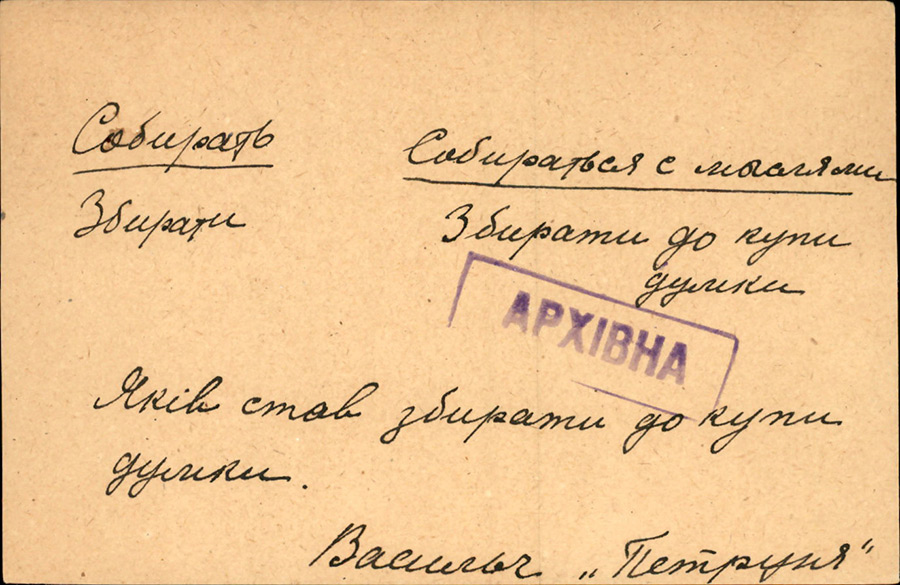 Собирать
Збирати
Собираться с мыслями
Збирати до купи
думки
АРХІВНА
Яків став збирати до купи
думки.
Васильч „Петруня"